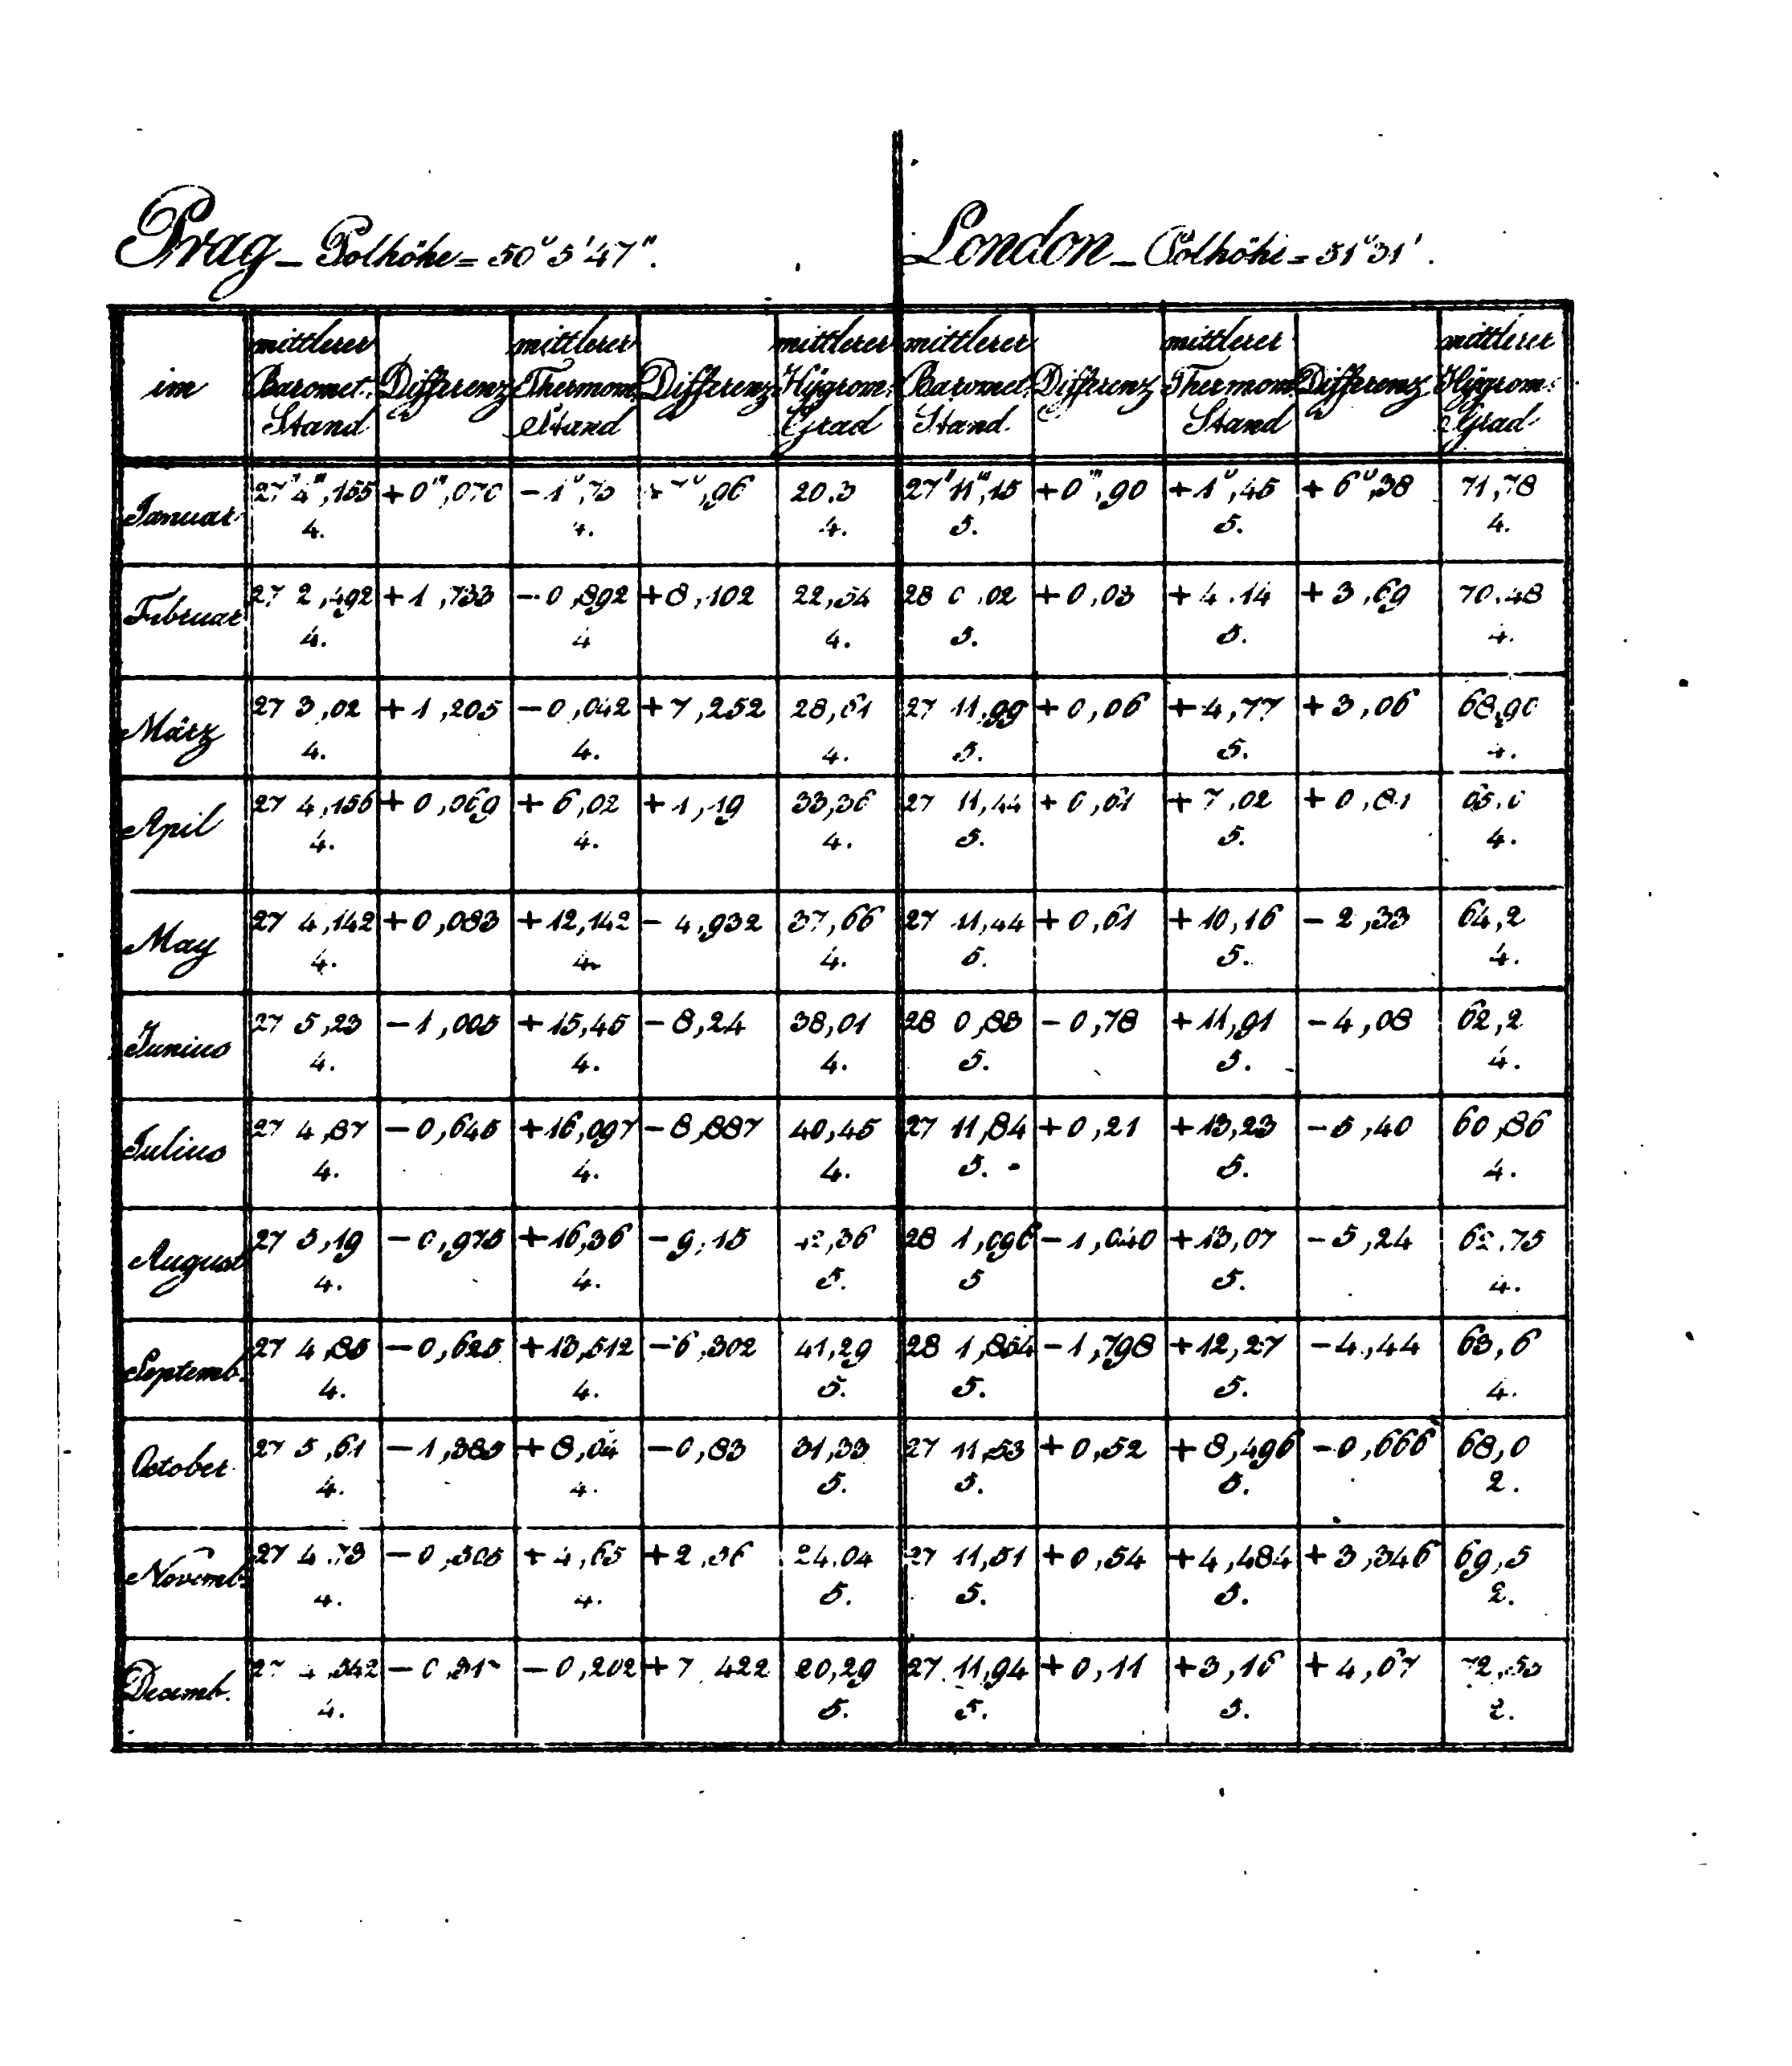 Prag – Polhöhe = 50° 5' 47". London – Polhöhe = 51° 31'.
im mittlerer Baromet. Stand Differenz mittlerer Thermom. Stand Differenz mittlerer Hÿgrom. Grad mittlerer Baromet. Stand. Differenz mittlerer Thermom. Stand Differenz mittlerer Hÿgrom. Grad
Januar 27" 4''',155 +0''',070 –1°, ,96 20,3 27" 11''',15 +0''',90 +1°,45 +6°,38 71,78
4. 4. 4. 5. 5. 4.
Februar 27 2,492 +1,733 –0,892 +8,102 22,54 28 0,02 +0,03 +4.14 +3,69 70.48
4. 4 4. 5. 5. 4.
März 27 3,02 +1,205 –0,042 +7,252 28,61 27 11,99 +0,06 +4,77 +3,06 68,90
4. 4. 4. 5. 5. 4.
April 27 4,156 +0,069 +6,02 +1,19 33,36 27 11,44 +0,61 +7,02 +0,81 65,0
4. 4. 4. 5. 5. 4.
May 27 4,142 +0,083 +12,142 –4,932 37,66 27 11,44 +0,61 +10,16 –2,33 64,2
4. 4. 4. 5. 5. 4.
Junius 27 5,23 –1,005 +15,45 –8,24 38,01 28 0,83 –0,78 +11,91 –4,08 62,2
4. 4. 4. 5. 5. 4.
Julius 27 4,87 –0,645 +16,097 –8,887 40,45 27 11,84 +0,21 +13,23 –5,40 60,86
4. 4. 4. 5. 5. 4.
August 27 5,19 –0,975 +16,36 –9,15 42,36 28 1,096 –1,040 +13,07 –5,24 62.75
4. 4. 5. 5 5. 4.
Septemb. 27 4,85 –0,625 +13,512 –6,302 41,29 28 1,854 –1,798 +12,27 –4,44 63,6
4. 4. 5. 5. 5. 4.
October 27 5,61 –1,385 +8,04 –0,83 31,33 27 11,53 +0,52 +8,496 –0,666 68,0
4. 4. 5. 5. 5. 2.
Novemb. 27 4.73 –0,505 +4,65 +2,36 24,04 27 11,51 +0,54 +4,484 +3,346 69,5
4. 4. 5. 5. 5. 2.
Decemb. 27 4,542 –0,202 +7 422 20,29 27 11,94 +0,11 +3,16 +4,67
4. 5. 5. 5. 2.